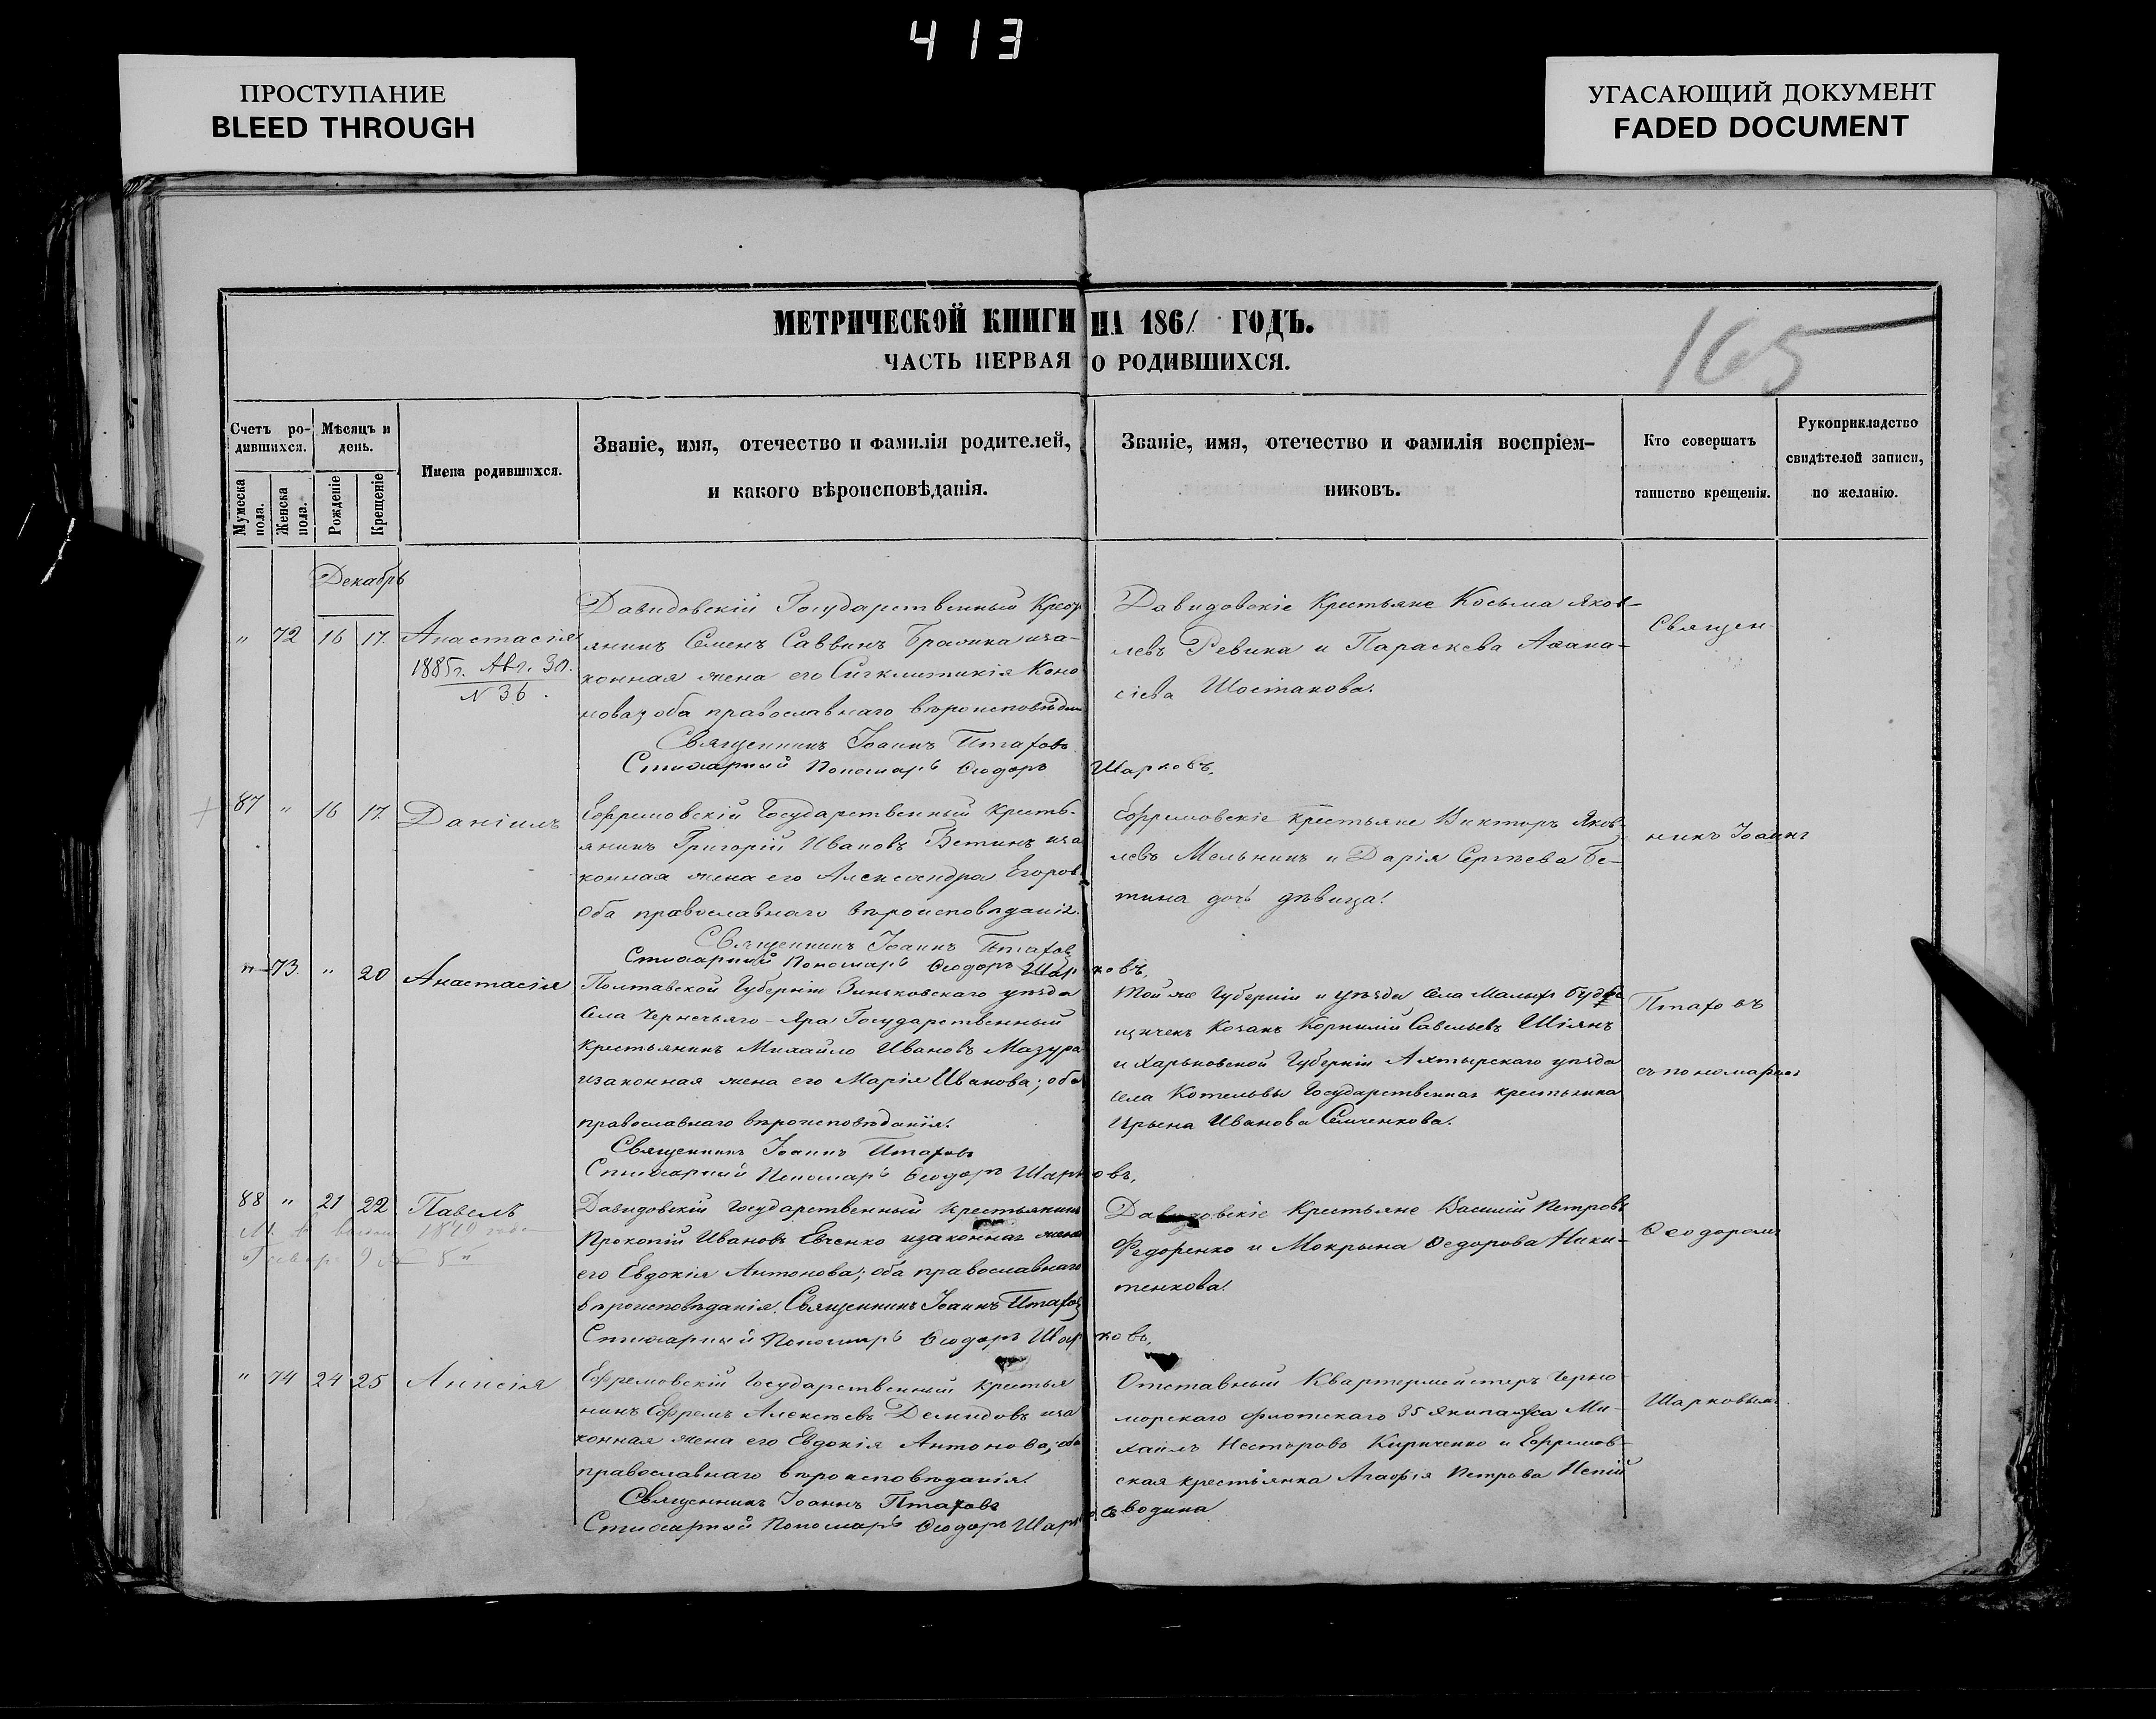 413
ПРОСТУПАНИЕ
BLEED THROUGH
УГАСАЮЩИЙ ДОКУМЕНТ
FADED DOCUMENT
МЕТРИЧЕСКОЙ КНИГИ НА 1861 ГОДЪ.
ЧАСТЬ ПЕРВАЯ О РОДИВШИХСЯ.
165
Счетъ ро-
дившихся.
Мужеска пола.
Женска пола.
Мѣсяцъ и
день.
Рожденіе
Крещеніе
Имена родившихся.
Званіе, имя, отечество и фамилія родителей,
и какого вѣроисповѣданія.
Званіе, имя, отечество и фамилія воспріем-
никовъ.
Кто совершатъ
таинство крещенія.
Рукоприкладство
свидѣтелей записи,
по желанію.
Декабрь
" 72 16 17. Анастасія
1885г. Авг. 30.
N 36.
Давидовскій Государственный Крест
янинъ Семенъ Саввинъ иза-
конная жена его Сигклитикія Коно
нова; оба православнаго вѣроисповѣдан
Священникъ Іоаннъ Птаховъ
Стихарный Пономарь Ѳеодоръ Шарковъ.
Давидовскіе Крестьяне Косьма Яков-
левъ Ревика и Параскева Аѳана-
сіева Шостакова.
Священ-
87 " 16 17. Даніилъ
Ефремовскій Государственный Кресть-
янинъ Григорій Ивановъ Бетинъ иза
конная жена его Александра Егоров.
оба православнаго вѣроисповѣданія.
Священникъ Іоаннъ Птаховъ
Стихарный Пономарь Ѳеодоръ Шарковъ.
Ефремовскіе Крестьяне Викторъ Яков-
левъ Мельникъ и Дарія Сергѣева Бе-
тина дочь дѣвица.
никъ Іоаннъ
" 73. " 20 Анастасія
Полтавской Губерніи Зиньковскаго уѣзда
Села Чернечьяго-Яра Государственный
Крестьянинъ Михайло Ивановъ Мазура
изаконная жена его Марія Иванова; оба
православнаго вѣроисповѣданія.
Священникъ Іоаннъ Птаховъ
Стихарный Пономарь Ѳеодоръ Шарковъ.
Той же Губерніи и уѣзда Села Малыхъ
Козакъ Корнилій Савельевъ Шіянъ
и Харьковской Губерніи Ахтырскаго уѣзда
села Котельвы Государственная крестьянка
Ирына Иванова Семченкова.
Птаховъ
съ пономаремъ
88 " 21 22 Павелъ
Давидовскій Государственный Крестьянинъ
Прокопій Ивановъ Евченко изаконная жена
его Евдокія Антонова; оба православнаго
вѣроисповѣданія. Священникъ Іоаннъ Птаховъ
Стихарный Пономарь Ѳеодоръ Шарковъ.
Давидовскіе Крестьяне Василій Петровъ
Федоренко и Мокрына Ѳедорова Ники-
тенкова.
Ѳеодоромъ
" 74 24 25 Анисія
Ефремовскій Государственный Крестья
нинъ Ефремъ Алексѣевъ Демидовъ иза
конная жена его Евдокія Антонова; оба
православнаго вѣроисповѣданія.
Священникъ Іоаннъ Птаховъ
Стихарный Пономарь Ѳеодоръ Шарковъ
Отставный Квартермейстеръ Черно
морскаго флотскаго 35 Экипажа Ми-
хаилъ Несторовъ Кириченко и Ефремов-
ская крестьянка Агафія Петрова Непій
водина
Шарковымъ.